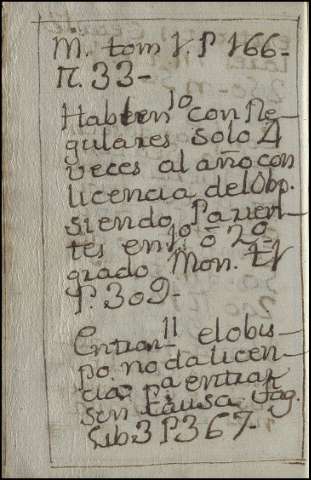 M. tom 1. P 166-
n. 33-
Hablen 10 con Re-
gulares solo 4
veces al año con
licencia del Obp.
siendo Parien-
tes en 1º ô 2º
grado Mon. tt
P. 309-
Entrar 11 el obis-
po no da licen-
cia pa entrar
sin causa Fag.
Lib 3 P 367-